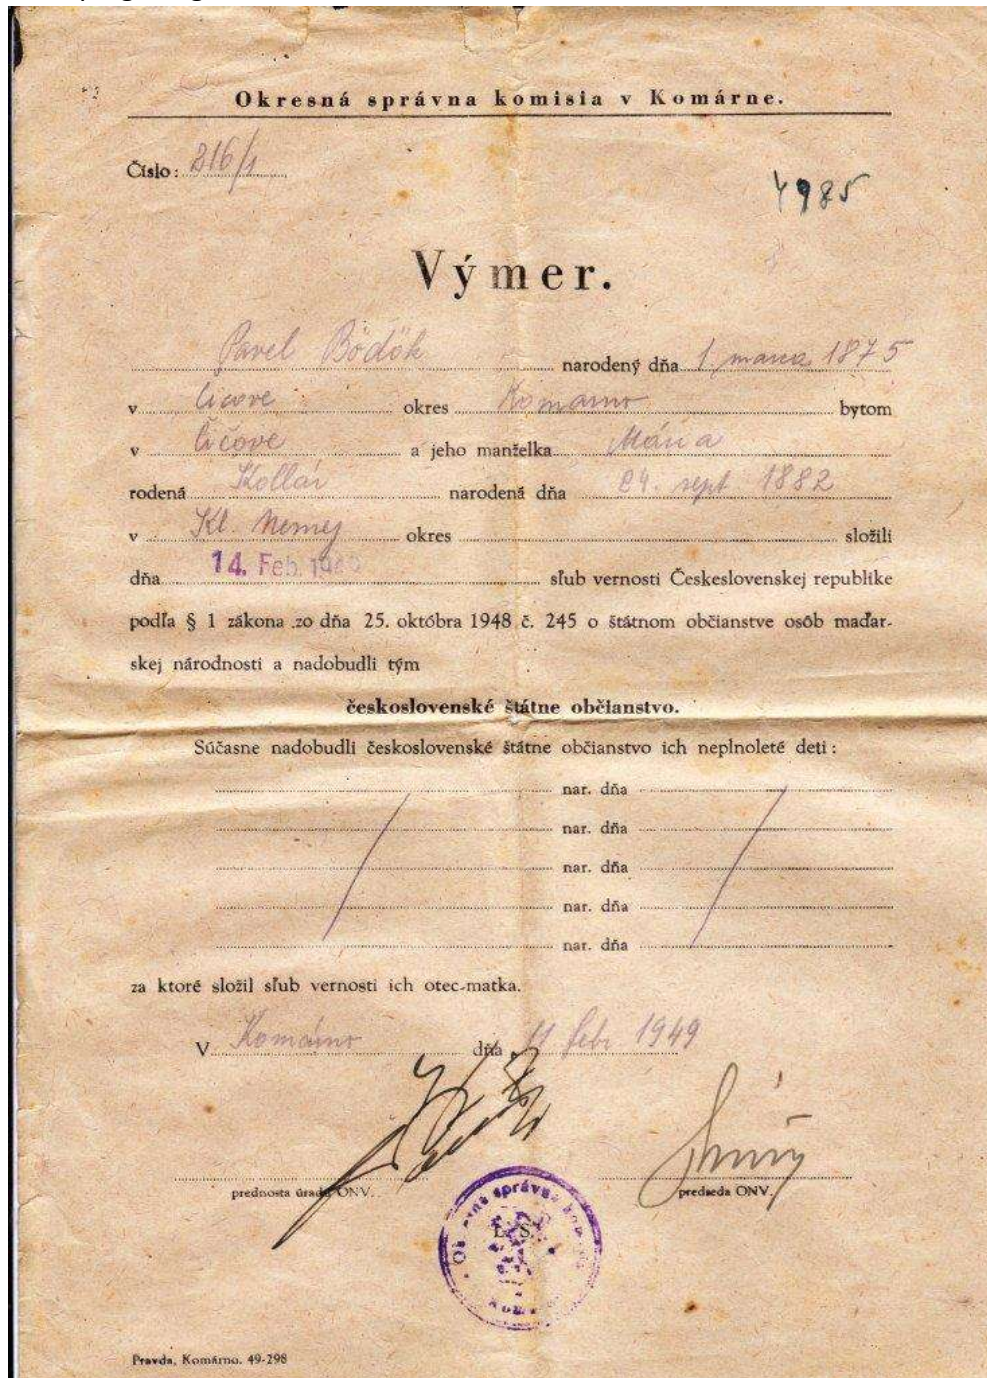 Okresná správna komisia v Komárne.
Číslo: 816/1
4985
Výmer.
Pavel Bödök narodený dňa 1. marca 1875
v Čičove okres Komárno bytom
v Čičove a jeho manželka Mária
rodená Kollár narodená dňa 24. sept 1882
v Kl. okres složili
dňa 14. Feb. 1949 sľub vernosti Československej republike
podľa § 1 zákona zo dňa 25. októbra 1948 č. 245 o štátnom občianstve osôb maďar-
skej národnosti a nadobudli tým
československé štátne občianstvo.
Súčasne nadobudli československé štátne občianstvo ich neplnoleté deti:
nar. dňa
nar. dňa
nar. dňa
nar. dňa
nar. dňa
za ktoré složil sľub vernosti ich otec-matka.
V Komárno dňa febr 1949
prednosta úradu ONV.
predseda ONV.
L. S.
správna
Pravda, Komárno. 49-298